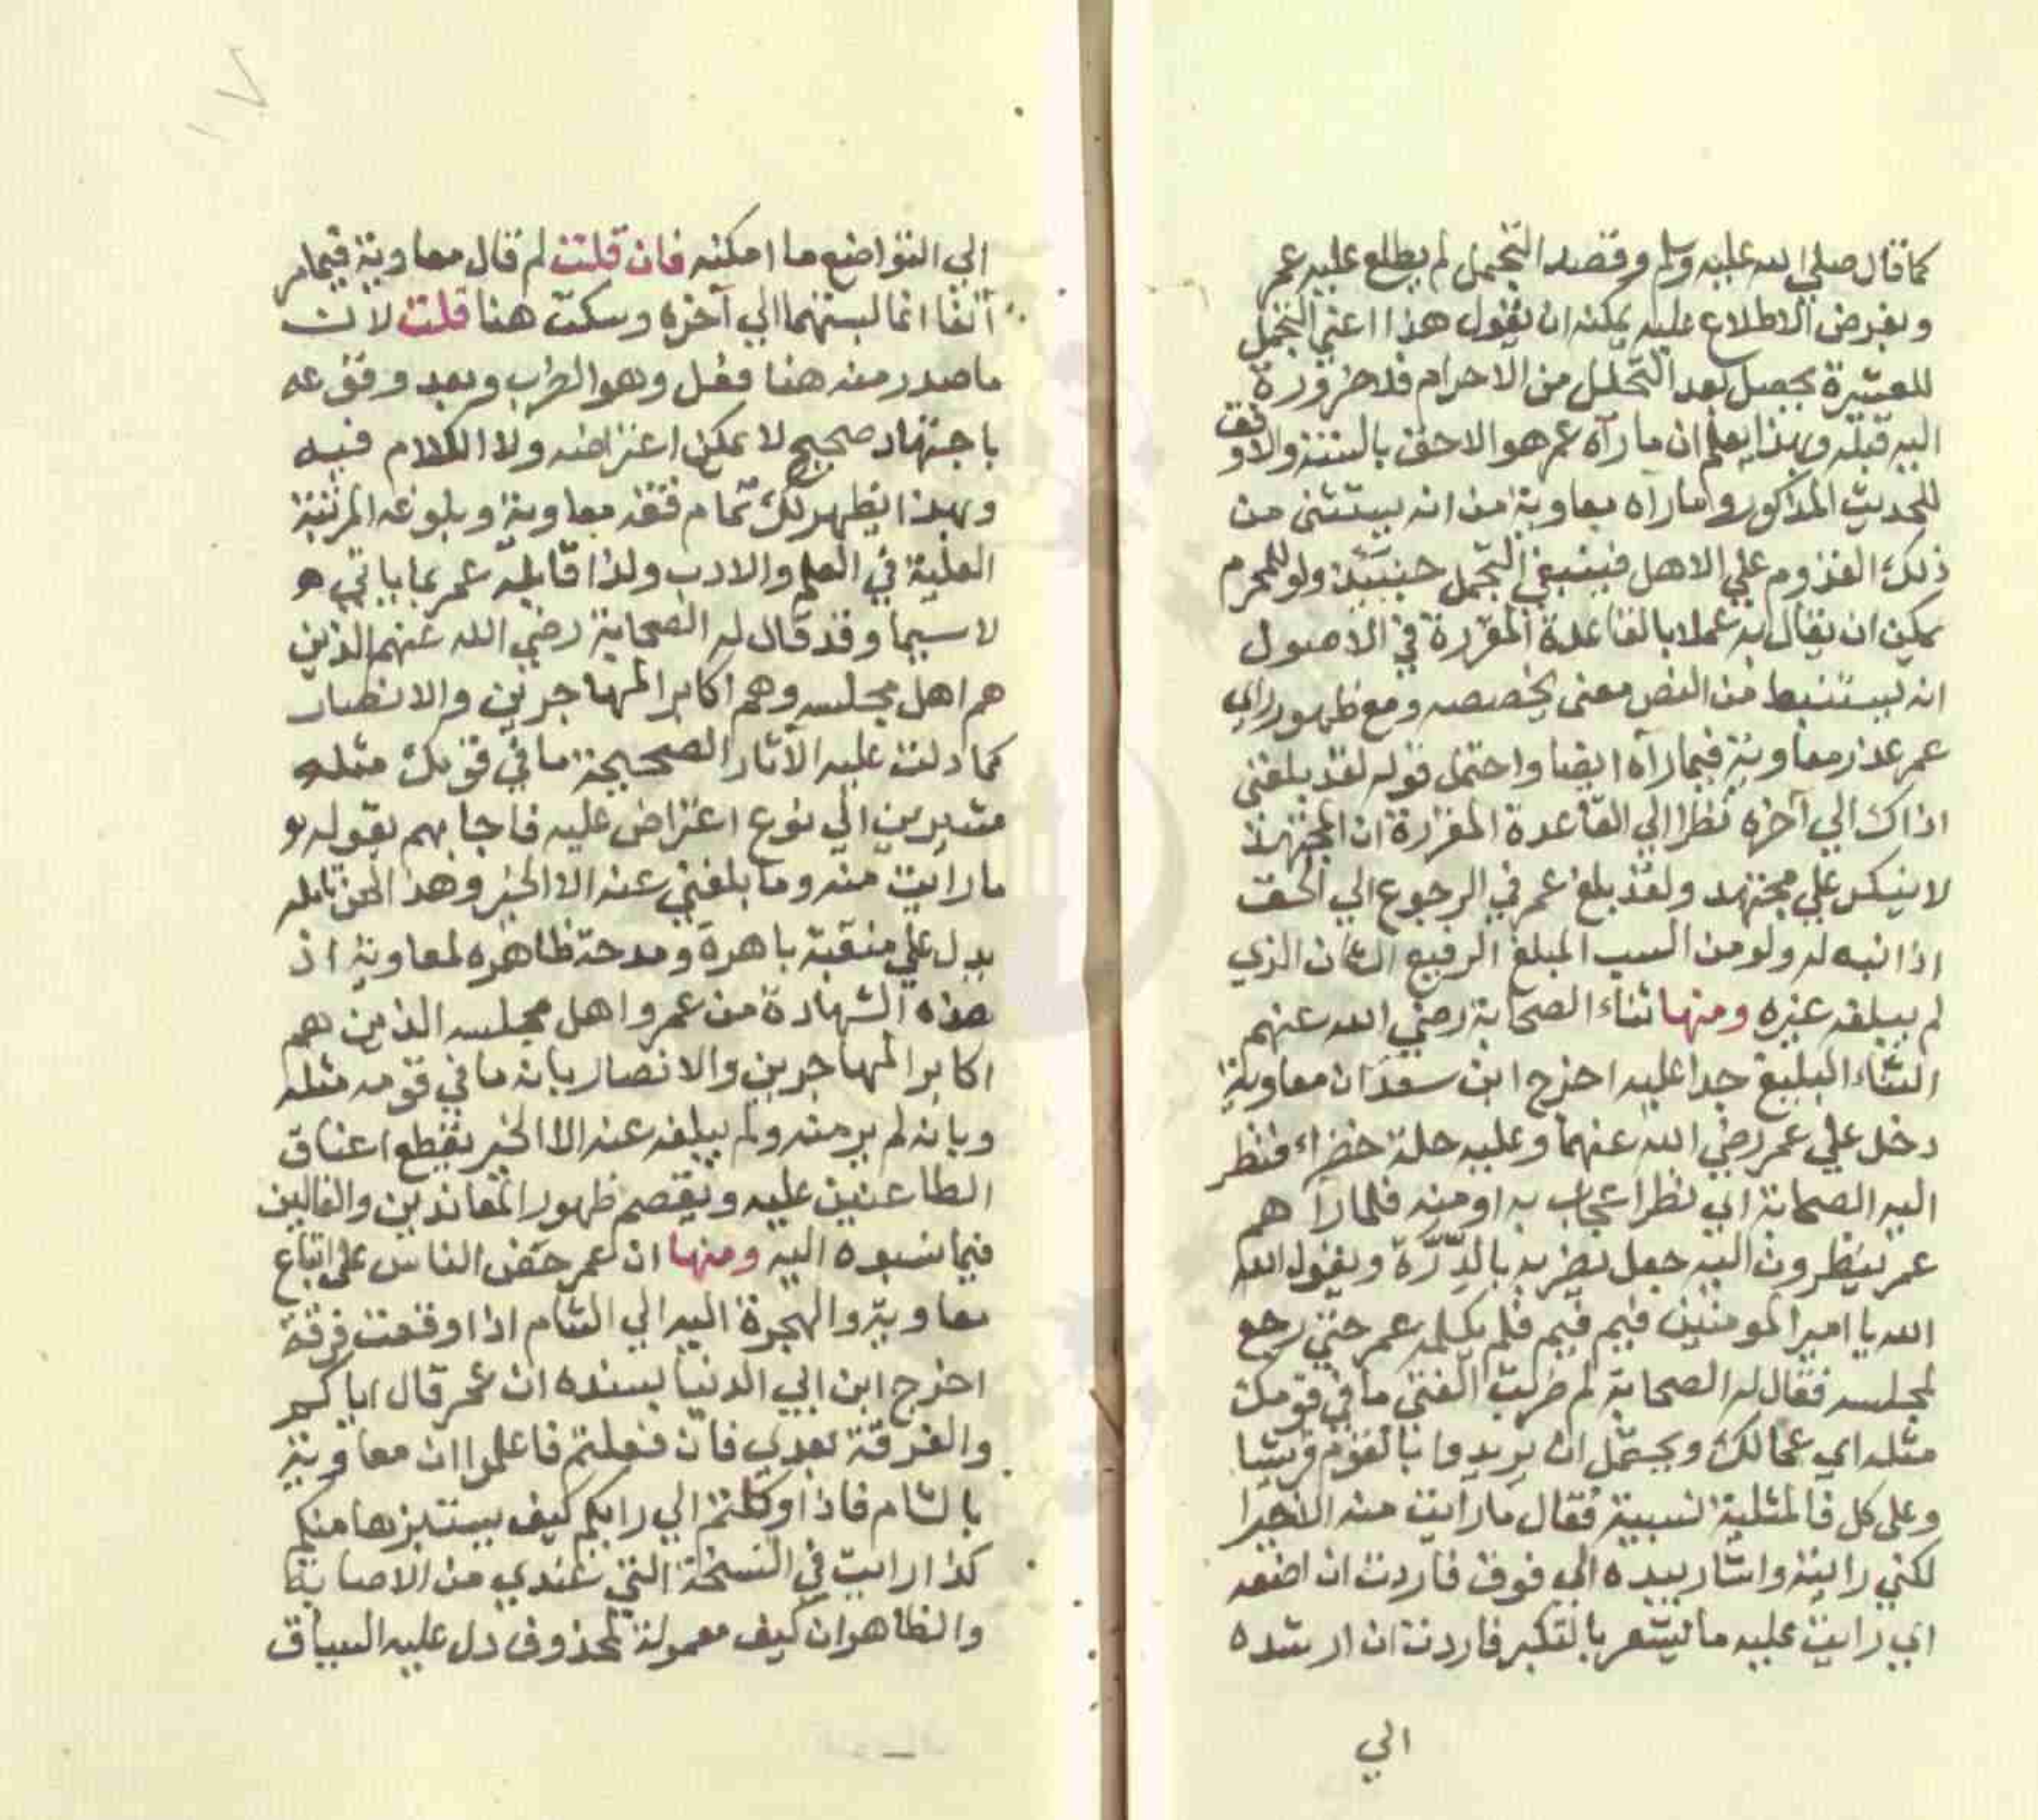 كما قال صلي الله عليه وسلم وقصد التجمل لم يطلع عليه عمر
وبفرض الاطلاع عليه يمكنه ان يقول هذا اعني التجمل
للعشيرة يحصل بعد التحلل من الاحرام فلا ضرورة
اليه قبله وبهذا يعلم ان ما رآه عمر هو الاحق بالسنة والاوفق
للحديث المذكور واما رآه معاوية من انه يستثنى من
ذلك القدوم علي الاهل فينبغي التجمل حينئذ ولو للمحرم
يمكن ان يقال به عملا بالقاعدة المقررة في الاصول
انه يستنبط من النص معنى يخصصه ومع ظهور راي
عمر عذر معاوية فيما رآه ايضا واحتمل قوله لقد بلغني
اذاك الي آخره نظرا الي القاعدة المقررة ان المجتهد
لا ينكر علي مجتهد ولقد بلغ عمر في الرجوع الي الحق
اذا نبه له ولو من السب المبلغ الرفيع الشان الذي
لم يبلغه غيره ومنها ثناء الصحابة رضي الله عنهم
الثناء البليغ جدا عليه اخرج ابن سعد ان معاوية
دخل علي عمر رضي الله عنهما وعليه حلة خضراء فنظر
اليه الصحابة اي نظر اعجاب به او منه فلما رآهم
عمر ينظرون اليه جعل يضربه بالدِّرَّة ويقول الله
الله يا امير المومنين فيم فيم فلم يكلمه عمر حتي رجع
لمجلسه فقال له الصحابة لم ضربت الفتي ما في قومك
مثله اي عمالك ويحتمل ان يريدوا بالقوم قريشا
وعلى كل فالمثلية نسبية فقال ما رايت منه الا خيرا
لكني رايته واشار بيده الي فوق فاردت ان اضعه
اي رايت عليه ما يشعر بالتكبر فاردت ان ارشده
الي
الي التواضع ما امكنه فان قلت لم قال معاوية فيما مر
آنفا انما لبستهما الي آخره وسكت هنا قلت لان
ما صدر منه هنا فعل وهو الضرب وبعد وقوعه
باجتهاد صحيح لا يمكن اعتراضه ولا الكلام فيه
وبهذا يظهر لك تمام فقه معاوية وبلوغه المرتبة
العلية في العلم والادب ولذا قابله عمر بما ياتي هو
لا سيما وقد قال له الصحابة رضي الله عنهم الذين
هم اهل مجلسه وهم اكابر المهاجرين والانصار
كما دلت عليه الآثار الصحيحة ما في قومك مثله
مشيرين الي نوع اعتراض عليه فاجابهم بقوله هو
ما رايت منه وما بلغني عنه الا الخير وهذا لمن تامله
يدل علي منقبة باهرة ومدحة ظاهره لمعاوية اذ
هذه الشهادة من عمر واهل مجلسه الذين هم
اكابر المهاجرين والانصار بانه ما في قومه مثله
وبانه لم ير منه ولم يبلغه عنه الا الخير يقطع اعناق
الطاعنين عليه ويقصم ظهور المعاندين والغالين
فيما نسبوه اليه ومنها ان عمر حض الناس على اتباع
معاوية والهجرة اليه الي الشام اذا وقعت فرقة
اخرج ابن ابي الدنيا بسنده ان عمر قال اياكم
والفرقة بعدي فان فعلتم فاعلموا ان معاوية
بالشام فاذا وكلتم الي رايكم كيف يستبزها منكم
كذا رايت في النسخة التي عندي من الاصابة
والظاهر ان كيف معمولة لمحذوف دل عليه السياق